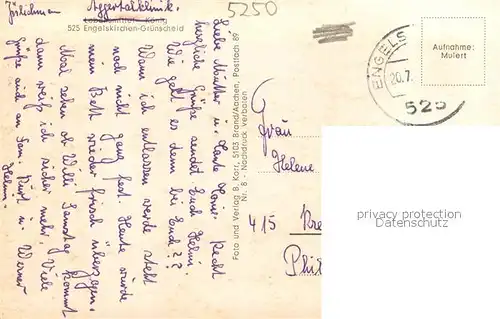 Aggertalklinik.
5250
525 Engelskirchen-Grünscheid
Liebe Mutter u. Tante
herzliche Grüße sendet Euch Helmi.
Wie geht es denn bei Euch??
Wann ich entlassen werde steht
noch nicht ganz fest. Heute wurde
mein Bett wieder frisch überzogen.
Mal sehen ob Willi Samstag kommt
dann weiß ich sicher mehr. Viele
Grüße auch an Fam. Kürt u. Werner
Helmi.
Foto und Verlag B. Korr, 5103 Brand/Aachen, Postfach 89
Nr. 8 - Nachdruck Verboten
ENGELS
20.7.
525
Aufnahme:
Mulert
Frau
Helene
415 Kre
Phil
privacy protection
Datenschutz